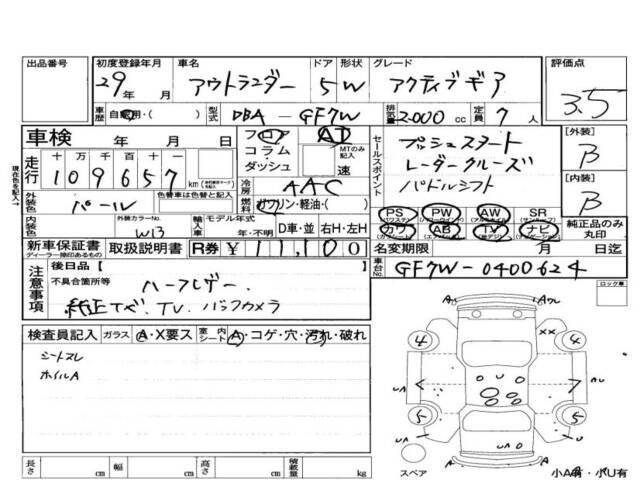 出品番号 初度登録年月 車名 ドア 形状 グレード 評価点
29年 月 アウトランダー 5 W アクティブギア 3.5
車歴 自家用・( ) 型式 DBA - GF7W 排気量 2000 cc 定員 7 人
車検 年 月 日 フロア AD セールスポイント プッシュスタート [外装] B
走行 十 万 千 百 十 一 コラム MTのみ記入 レーダークルーズ
109657 km ダッシュ 速 パドルシフト [内装] B
外装色 パール 色替車は色替と記入 冷房 AAC
燃料 ガソリン・軽油・( ) PS PW AW SR
内装色 外装カラーNo. W13 輸入車 モデル年式 年・不明 D車・並 右H・左H カワ AB TV ナビ 純正品のみ丸印
新車保証書 取扱説明書 R券 ¥11,100 名変期限 月 日迄
ディーラー捺印あるもの 車台No. GF7W-0400624
現在色を記入→
注意事項 後日品【 】 ロック車
不具合箇所等 ハーフレザー
純正ナビ.TV.バックカメラ
検査員記入 ガラス A・X要ス 室内シート A・コゲ・穴・汚れ・破れ
シートスレ
ホイルA
A A U
XX
4 4
UA AU
5 5
UA U
長さ cm 幅 cm 高さ cm 積載量 kg スペア 小A有・小U有